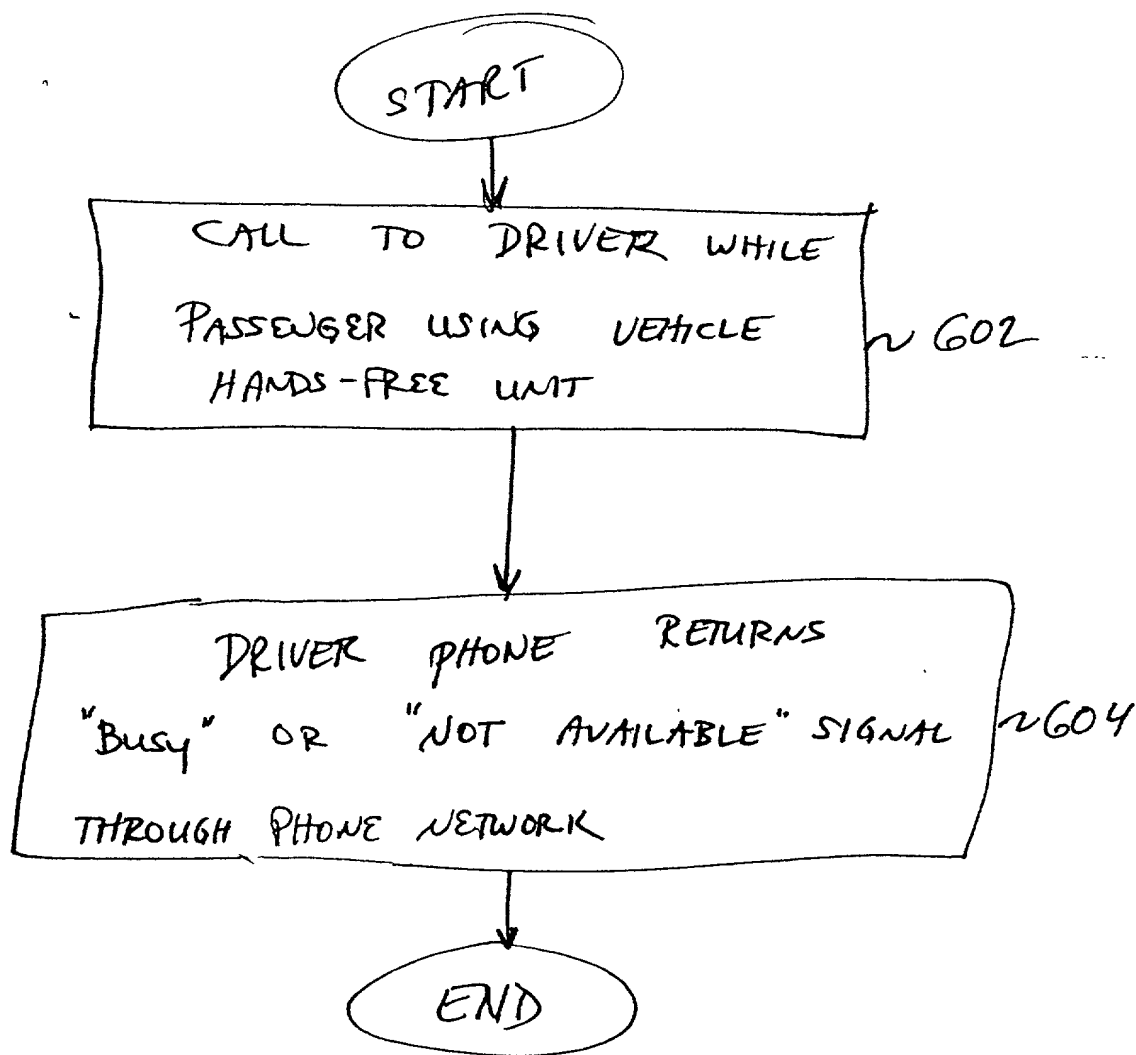 START
CALL TO DRIVER WHILE
PASSENGER USING VEHICLE
HANDS-FREE UNIT
~ 602
DRIVER PHONE RETURNS
"BUSY" OR "NOT AVAILABLE" SIGNAL
THROUGH PHONE NETWORK
~604
END